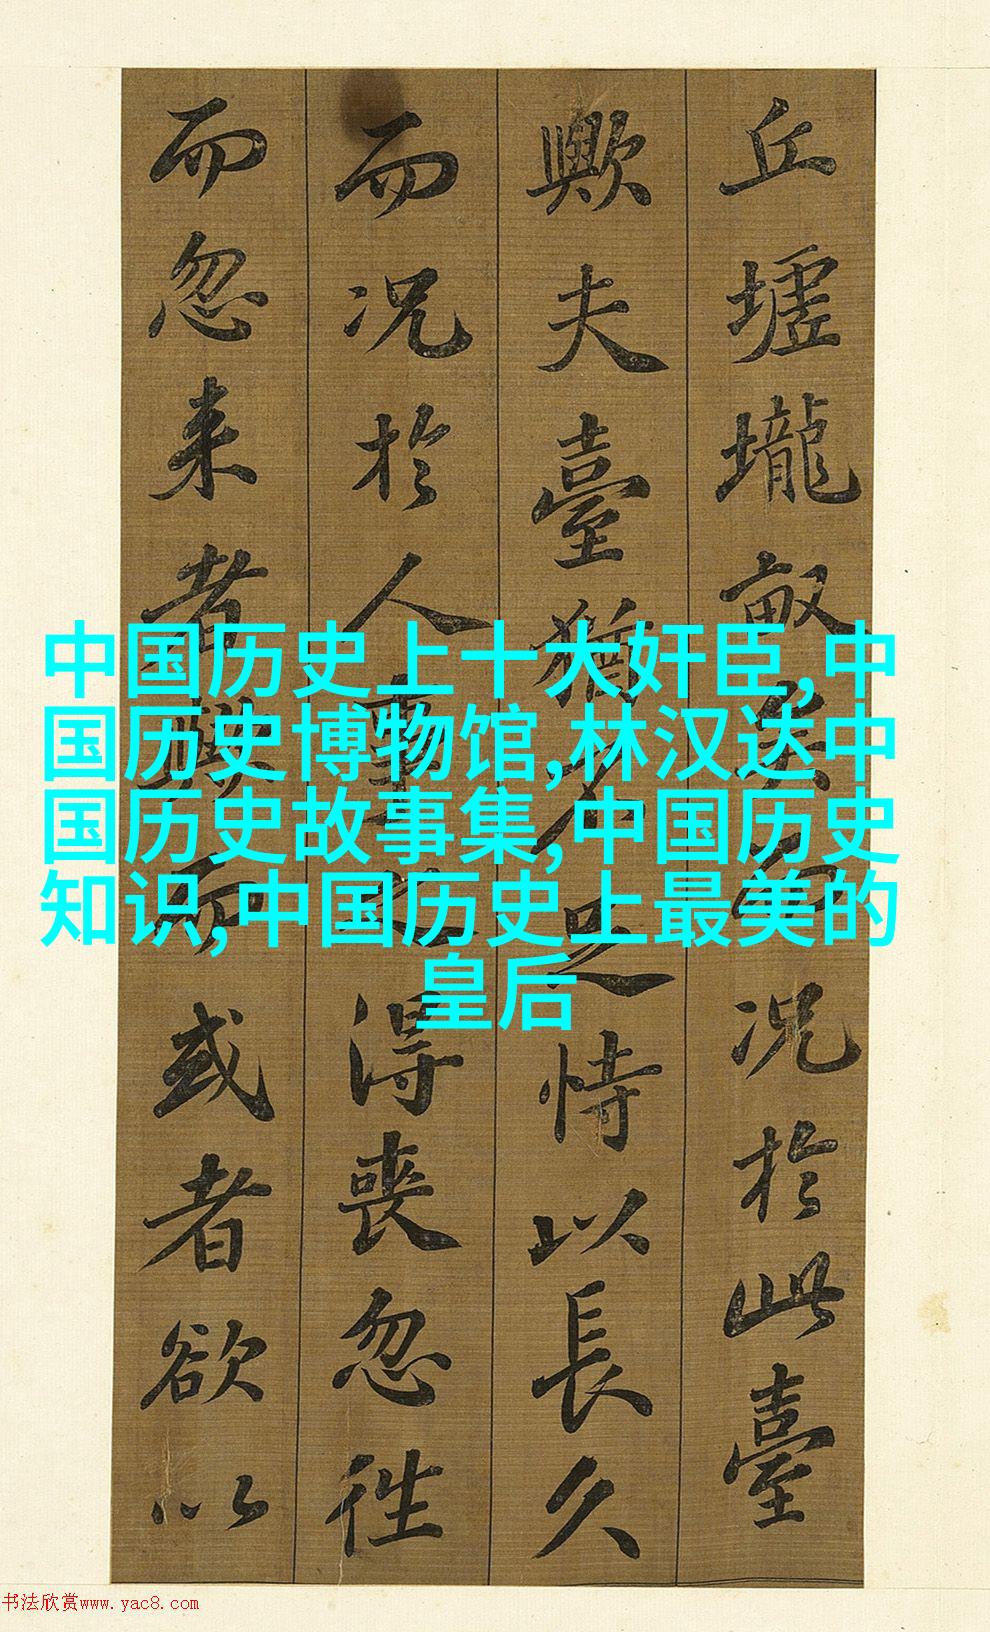 丘墟壠畝矣而况於此臺
歟夫臺猶不足恃以長久
而况於人事之得喪忽往
而忽来者歟而或者欲以
中国历史上十大奸臣,中
国历史博物馆,林汉达中
国历史故事集,中国历史
知识,中国历史上最美的
皇后
书法欣赏www.yac8.com